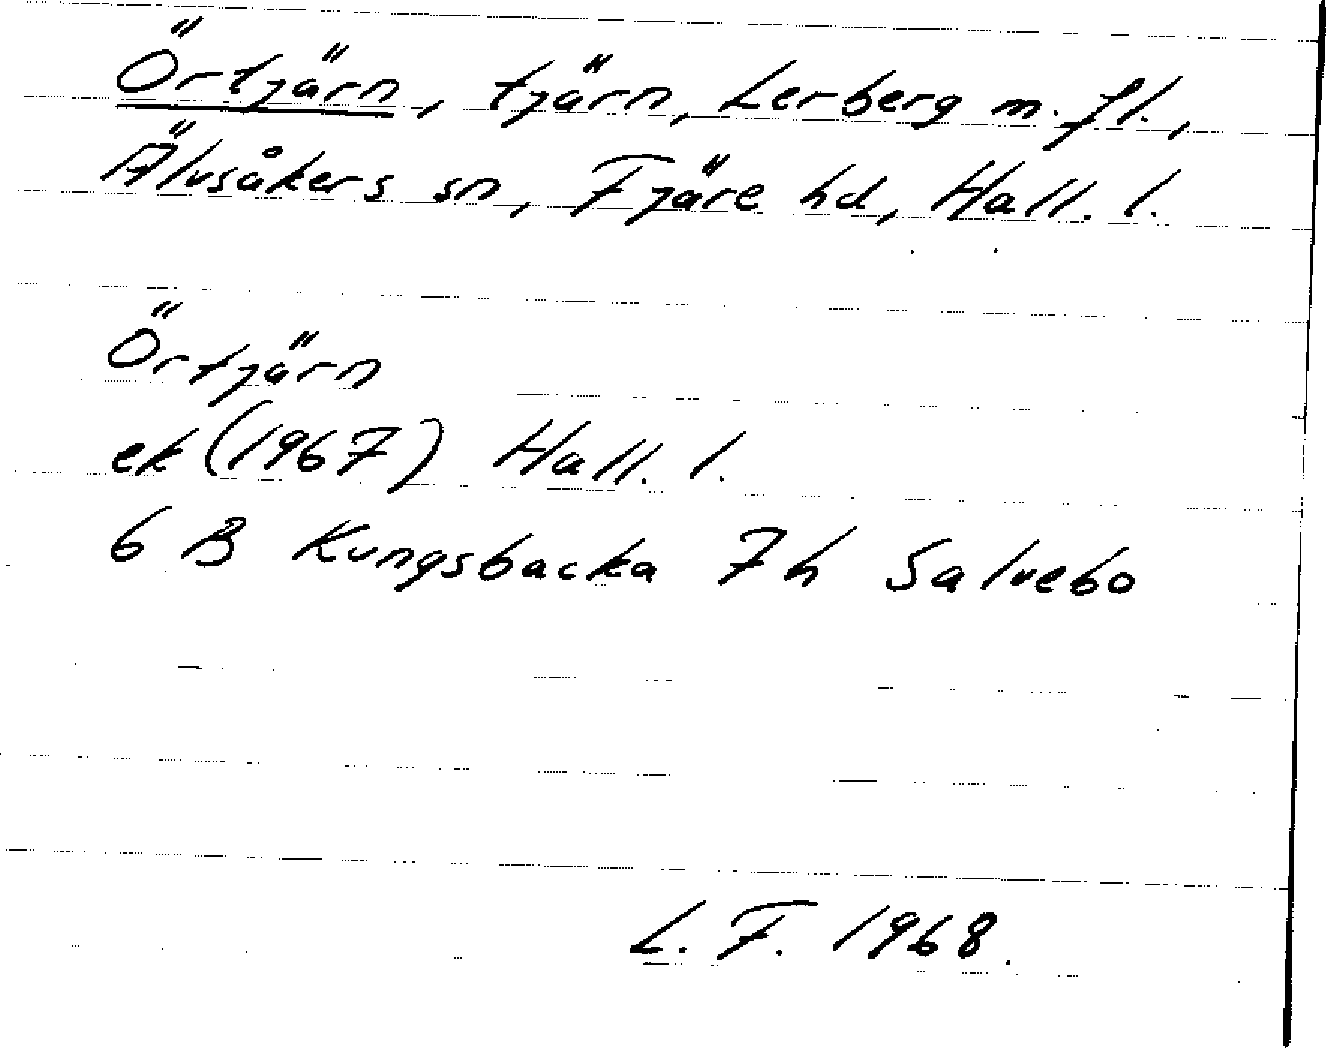 Örtjärn, tjärn, Lerberg m. fl.,
Älvsåkers sn, Fjäre hd, Hall. l.
Örtjärn
ek (1967) Hall. l.
6 B Kungsbacka 7h Salvebo
L. F. 1968.